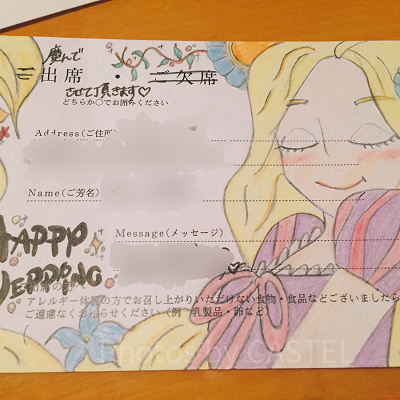 慶んで
ご出席・ご欠席
させて頂きます♡
どちらか○でお囲みください
Address(ご住所)
Name(ご芳名)
Message(メッセージ)
HAPPY
WEDDING
アレルギー体質の方でお召し上がりいただけない食物・食品などございましたら
ご遠慮なくお知らせください(例 乳製品・卵など)
Photos by CASTEL